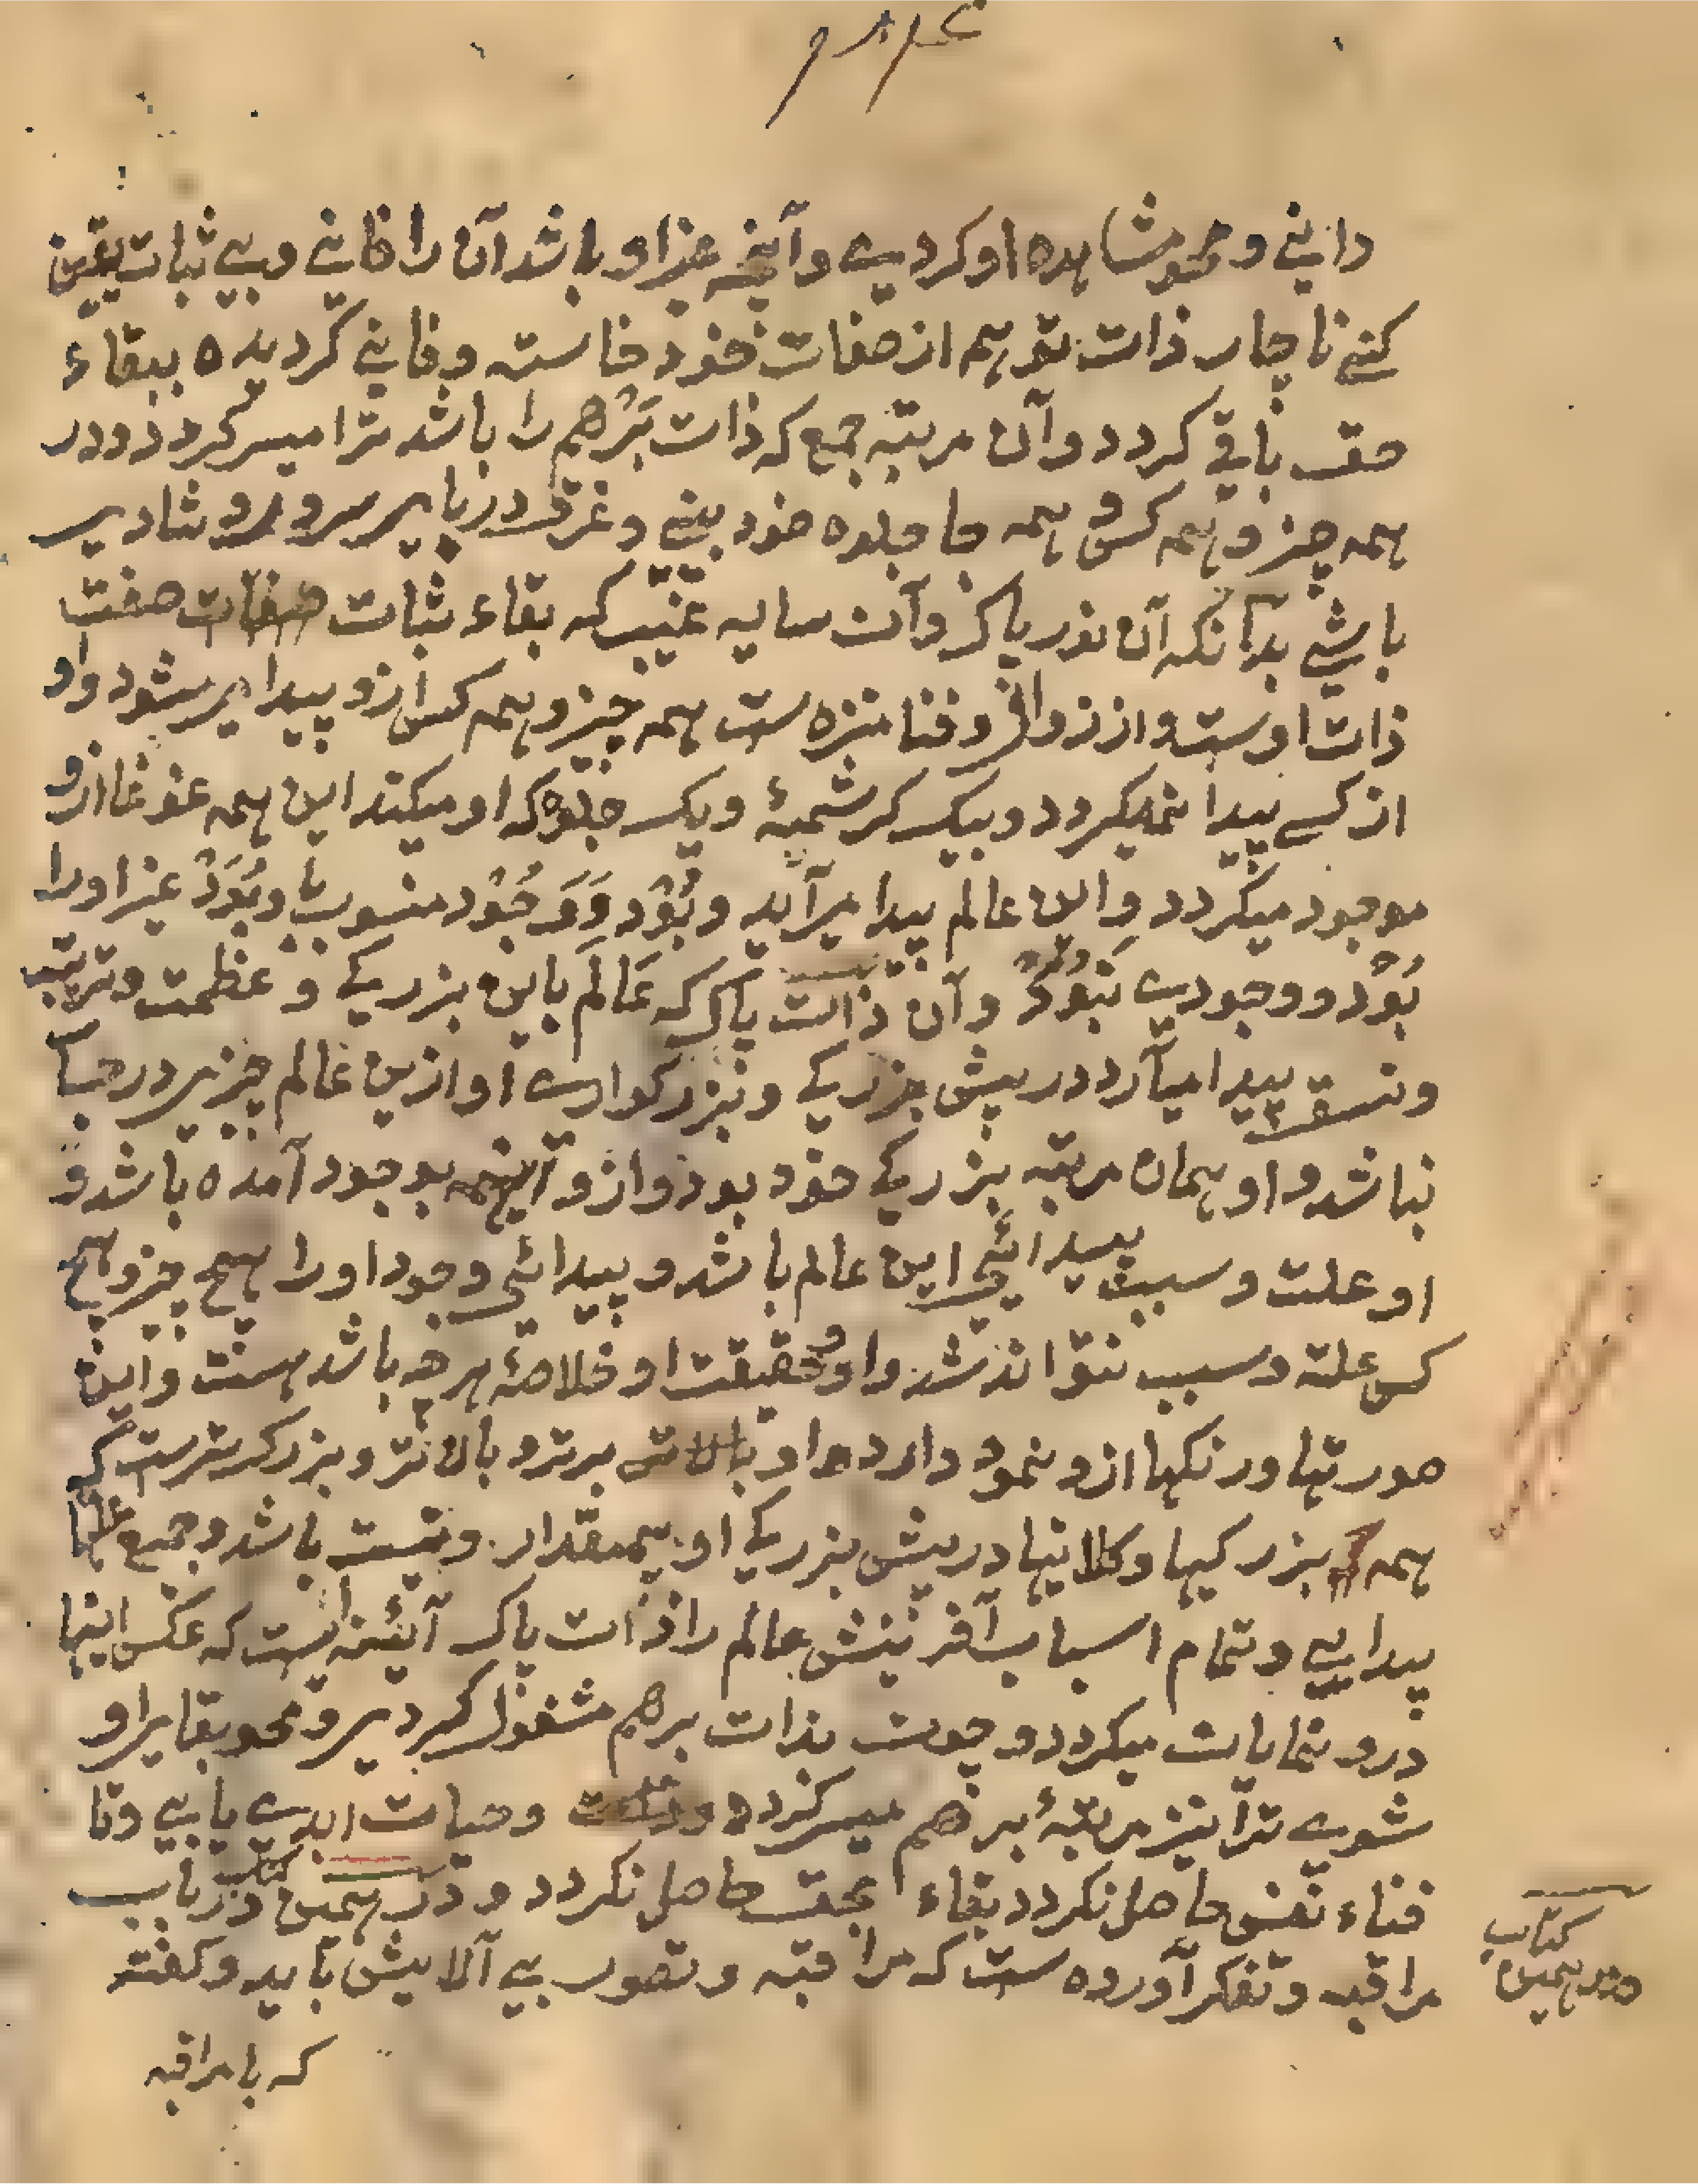 دانی و محو مشاهده او کردی و آنچه غیر او باشد آن را فانی و بی ثبات یقین
کنی ناچار ذات تو هم از صفات خود خاسته و فانی گردیده ببقاء
حق باقی گردد و آن مرتبه جمع که ذات بَرْهم را باشد ترا میسر گردد و در
همه چیز و همه کس و همه جا جلوه خود بینی و غرق دریای سرور و شادی
باشی بدآنکه آن نور پاک و آن سایه غیب که بقاء ثبات صفات صفت
ذات اوست و از زوال و فنا منزه ست همه چیز و همه کس ازو پیدا میشود و او
از کسی پیدا نمیگردد و بیک کرشمهٔ و یک جلوه که او میکند این همه غوغا ازو
موجود میگردد و این عالم پیدا میآید و بُوْد وَ وَجُوْد منسوب باو بُوَدْ غیر او را
بُوْد و وجودی نَبُوَدْ و آن ذات پاک که عَالَم باین بزرگی و عظمت و ترتیب
و نسق پیدا میآرد در پیش بزرگی و بزرگواری او ازین عالم چیزی در حساب
نباشد و او همان مرتبه بزرگی خود بود و ازو اینهمه بوجود آمده باشد و
او علت و سبب پیدائی این عالم باشد و پیدائی وجود او را هیچ چیز و هیچ
کس علت و سبب نتواند شد و او حقیقت و خلاصهٔ هرچه باشد هست و این
صورتها و رنگها ازو نمود دارد و او بالاتر برتر و بالاتر و بزرگترست که
همه بزرگیها و کلانیها در پیش بزرگی او بیمقدار و نیست باشد و جمیع علتها
پیدایی و تمام اسباب آفرینش عالم را ذات پاک آئینه ایست که عکس اینها
درو نمایان میگردد و چون بذات برهم مشغول گردی و محو بقای او
شوی ترا نیز مرتبهٔ برهم میسر گردد و حیات ابدی یابی و تا
فناء نفس حاصل نگردد بقاء بحق حاصل نگردد و در همین کتاب در باب
مراقبه و تفکر آورده ست که مراقبه و تصور بی آلایش باید و گفته
کتاب
در همین
که با مراقبه